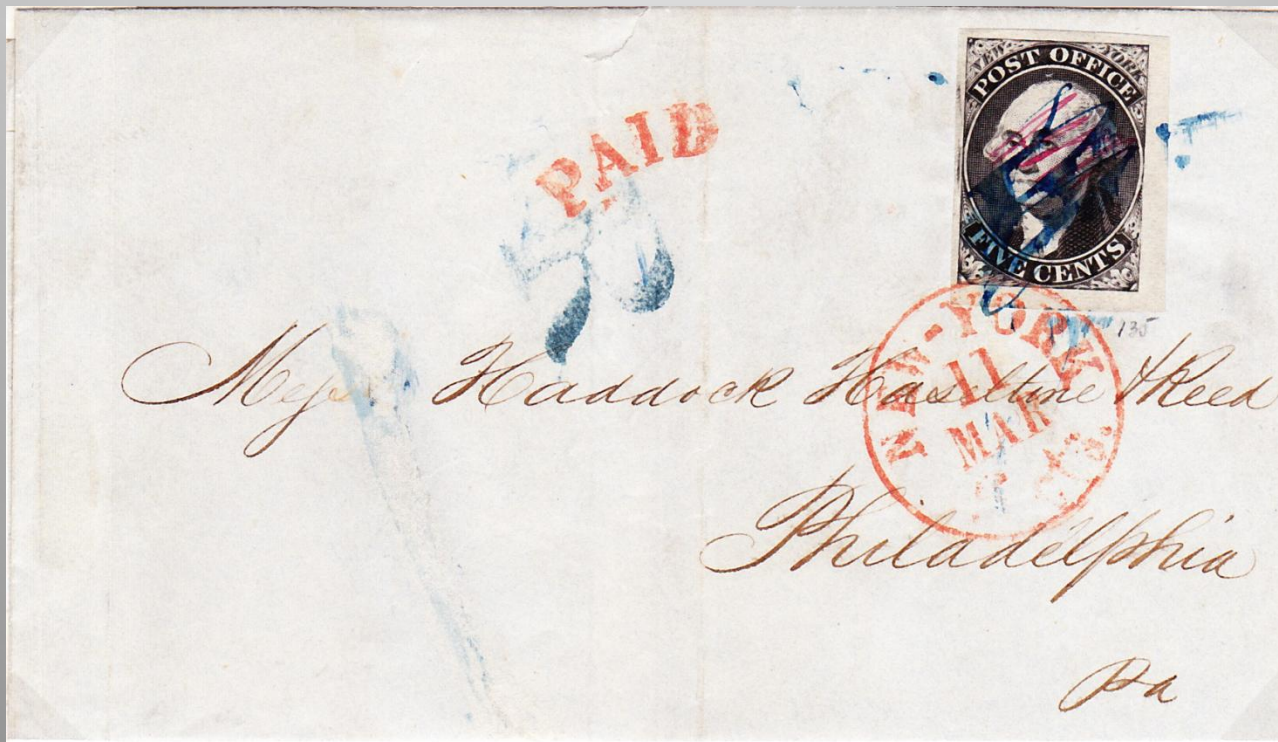 NEW YORK
POST OFFICE
FIVE CENTS
PAID
NEW-YORK
11
MAR
5 Cts.
135
Messrs Haddock Haseltine & Reed
Philadelphia
Pa